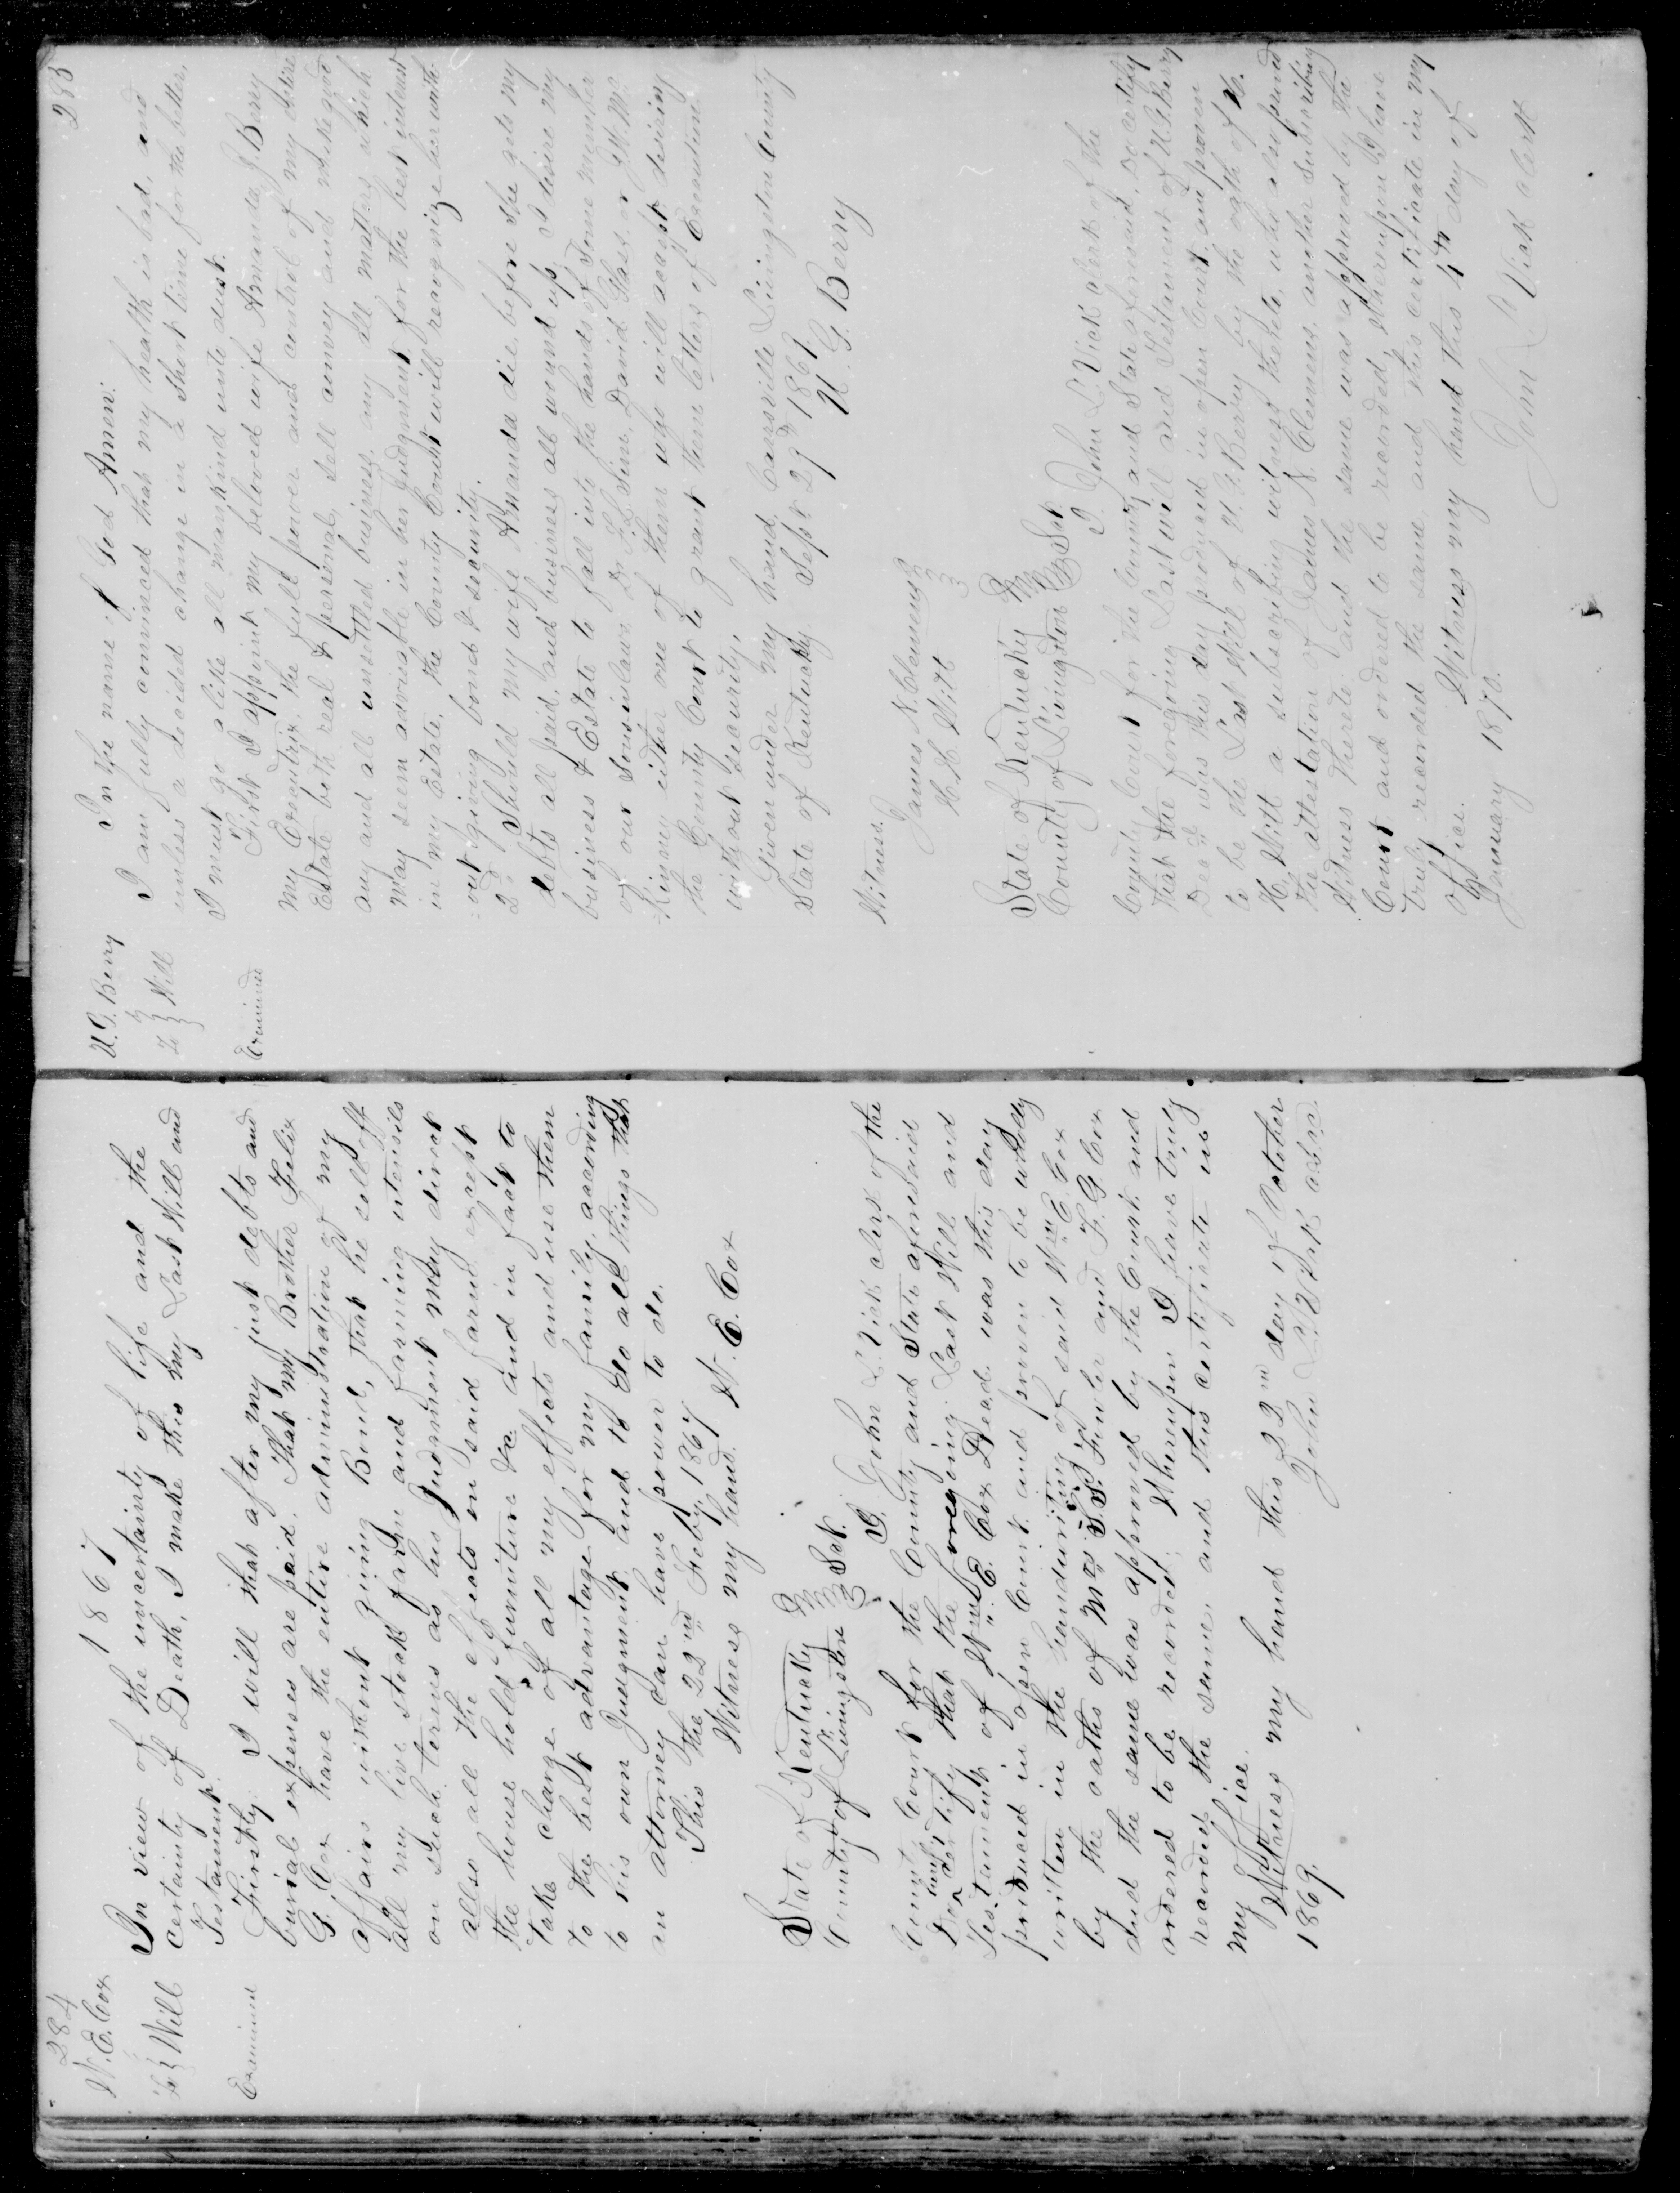 284
W. E. Cox
To } Will
Examined
1867
In view of the uncertainty of life and the
certainty of Death, I make this my Last Will and
Testament.
Firstly. I will that after my just debts and
burial expenses are paid. That my Brother Felix
G. Cox have the entire administration of my
affairs without giving Bond, that he sell off
all my live stock farm and farming utensils
on such terms as his Judgment may direct
allso all the effects on said farm except
the house hold furniture &c. and in fact to
take charge of all my effects and use them
to the best advantage for my family, according
to his own Judgment and to do all things that
an attorney can have power to do.
This the 22nd Feby. 1867
Witness my hand. W. E. Cox
State of Kentucky
County of Livingston } Sct.
I. John L. Vick clerk of the
County Court for the County and State aforesaid
Do certify that the foregoing Last Will and
Testament of Wm. E. Cox Decd. was this day
produced in open Court and proven to be wholly
written in the handwriting of said Wm. E. Cox
by the oaths of Mrs. Fowler and F. G. Cox
and the same was approved by the Court and
ordered to be recorded; Whereupon I have truly
recorded the same, and this certificate in
my office.
Witness my hand this 22nd day of October
1869.
John L. Vick
283
U. G. Berry
To } Will
Examined
In the name of God Amen:
I am fully convinced that my health is bad, and
unless a decided change in a short time for the better,
I must go alike all mankind unto dust.
First I appoint my beloved wife Amanda J. Berry
my Executrix, the full power and control of my entire
Estate both real & personal, sell convey and make good
any and all unsettled business, any all matters which
may seem advisable in her Judgment for the best interest
in my Estate, the County Court will recognize her with
:out giving bond & security.
2d. Should my wife Amanda die before she gets my
debts all paid, and business all wound up. I desire my
business & Estate to fall into the hands of some member
of our Sonsinlaw Dr. F. Sim, David Glass, or J. W. Mc
Kinney either one of them who will accept desiring
the County Court to grant them letters of Execution
without security,
Given under my hand, Carrsville Livingston County
State of Kentucky Sept 29th 1869
U. G. Berry
Witness.
James N. Clemens
H. H. Witt
State of Kentucky
County of Livingston } Sct
I John L. Vick clerk of the
County Court for the County and State aforesaid, Do certify
that the foregoing Last will and Testament of U. G. Berry
Decd. was this day produced in open Court and proven
to be the Last Will of U. G. Berry by the oath of H.
H. Witt a subscribing witness thereto, who also proved
the attestation of James N. Clemens, another subscribing
Witness thereto and the same was approved by the
Court and ordered to be recorded, Whereupon I have
truly recorded the same, and this certificate in my
office.
Witness my hand this 4th day of
January 1870.
John L Vick clerk